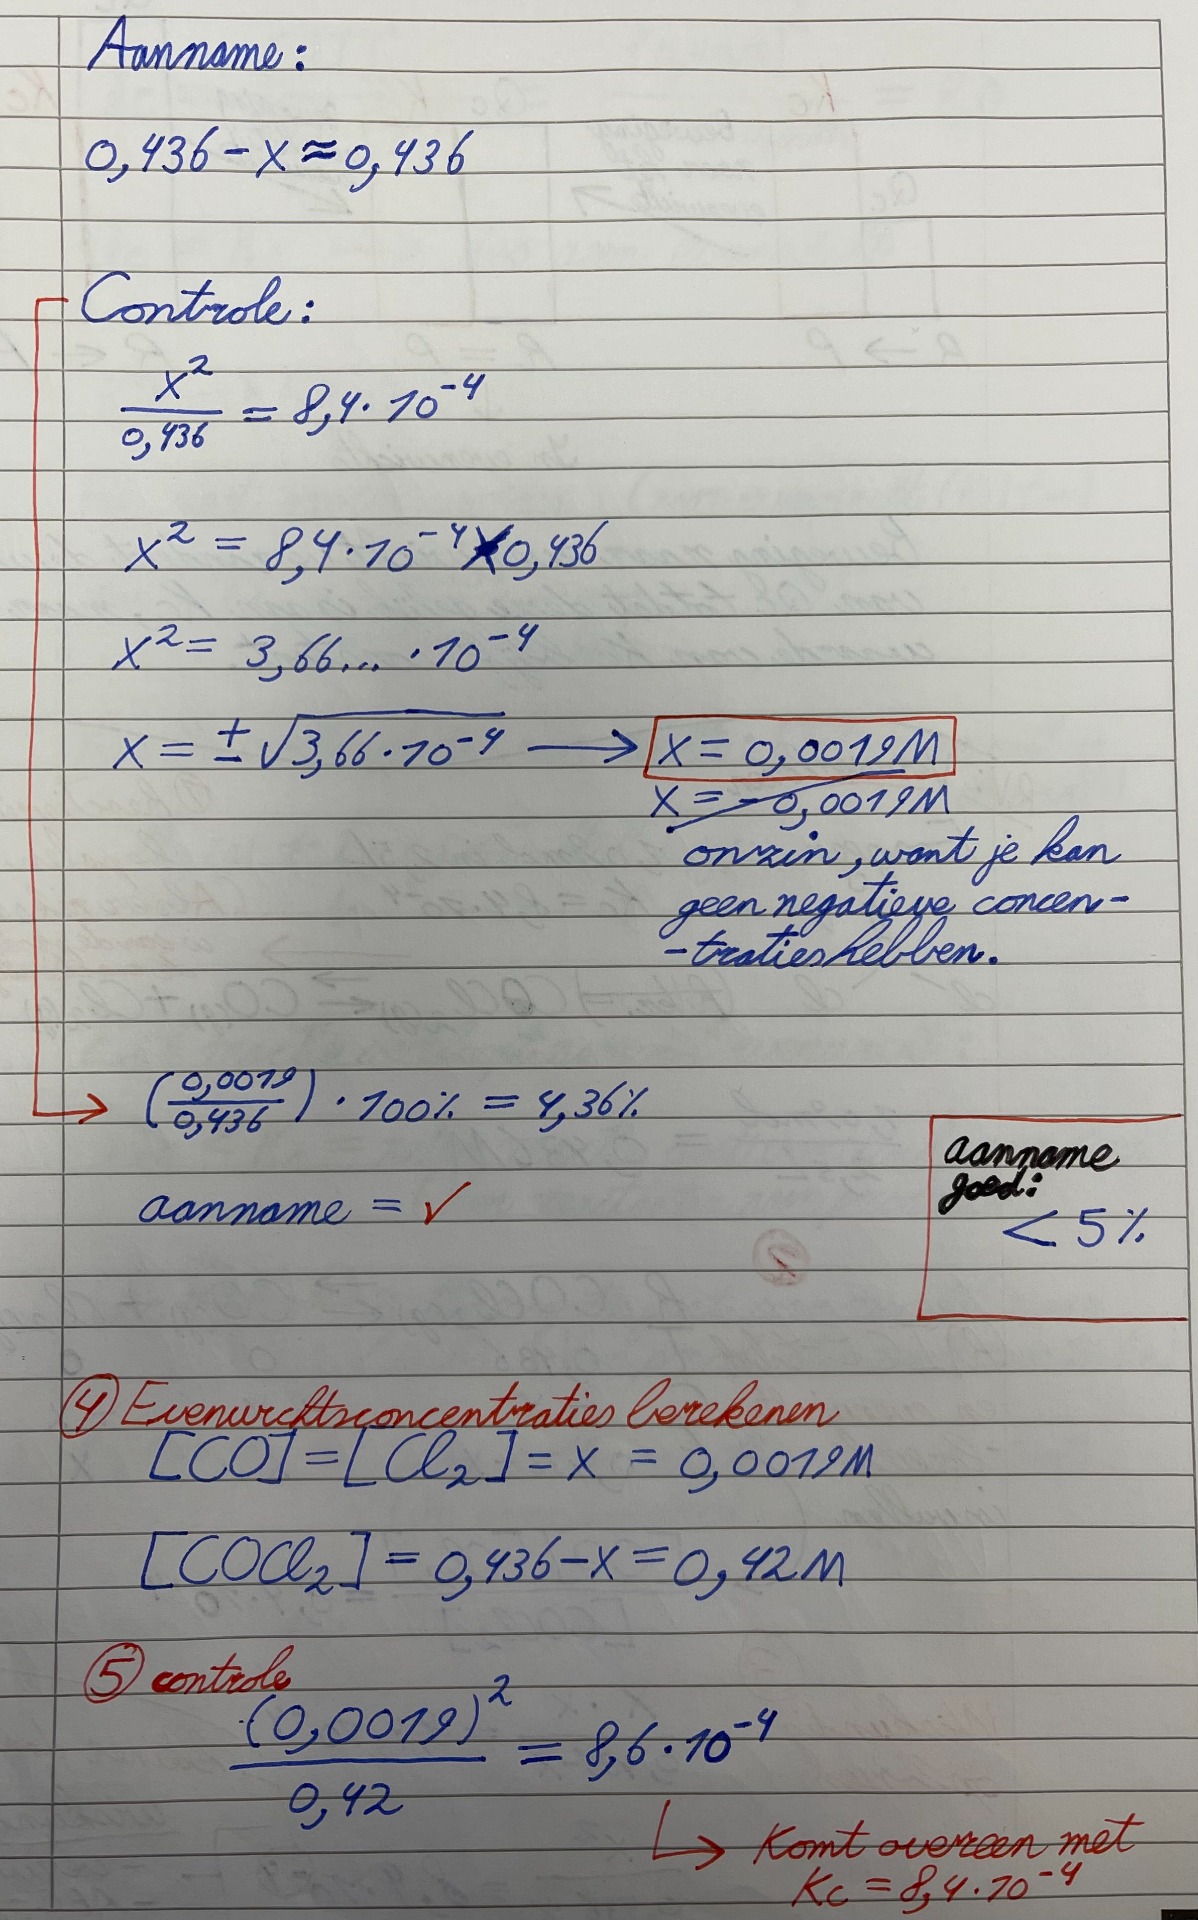 Aanname:
0,436 - x ≈ 0,436
Controle:
x²/0,436 = 8,4·10⁻⁴
x² = 8,4·10⁻⁴ x 0,436
x² = 3,66...·10⁻⁴
x = ±√3,66·10⁻⁴ → x = 0,0019M
x = -0,0019M
onzin, want je kan
geen negatieve concen-
-traties hebben.
(0,0019/0,436)·100% = 4,36%
aanname
goed:
< 5%
aanname = ✓
④ Evenwichtsconcentraties berekenen
[CO] = [Cl₂] = x = 0,0019M
[COCl₂] = 0,436 - x = 0,42M
⑤ controle
(0,0019)²/0,42 = 8,6·10⁻⁴
↳ Komt overeen met
Kc = 8,4·10⁻⁴